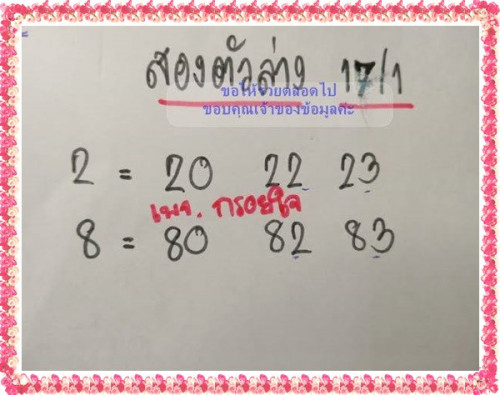 สองตัวล่าง 17/1
ขอให้รวยตลอดไป
ขอบคุณเจ้าของข้อมูลค่ะ
2 = 20 22 23
เพจ. กรอยใจ
8 = 80 82 83